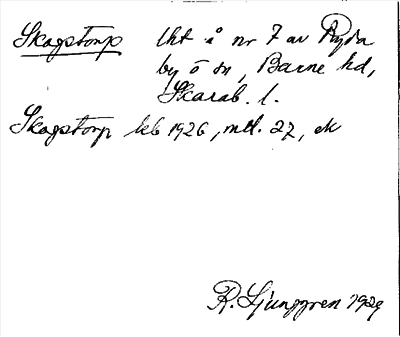 Skogstorp lht å nr 7 av Ryda
by ö sn, Barne hd,
Skarab. l.
Skogstorp kb 1926, mtl. 27, ek
R. Ljunggren 1929